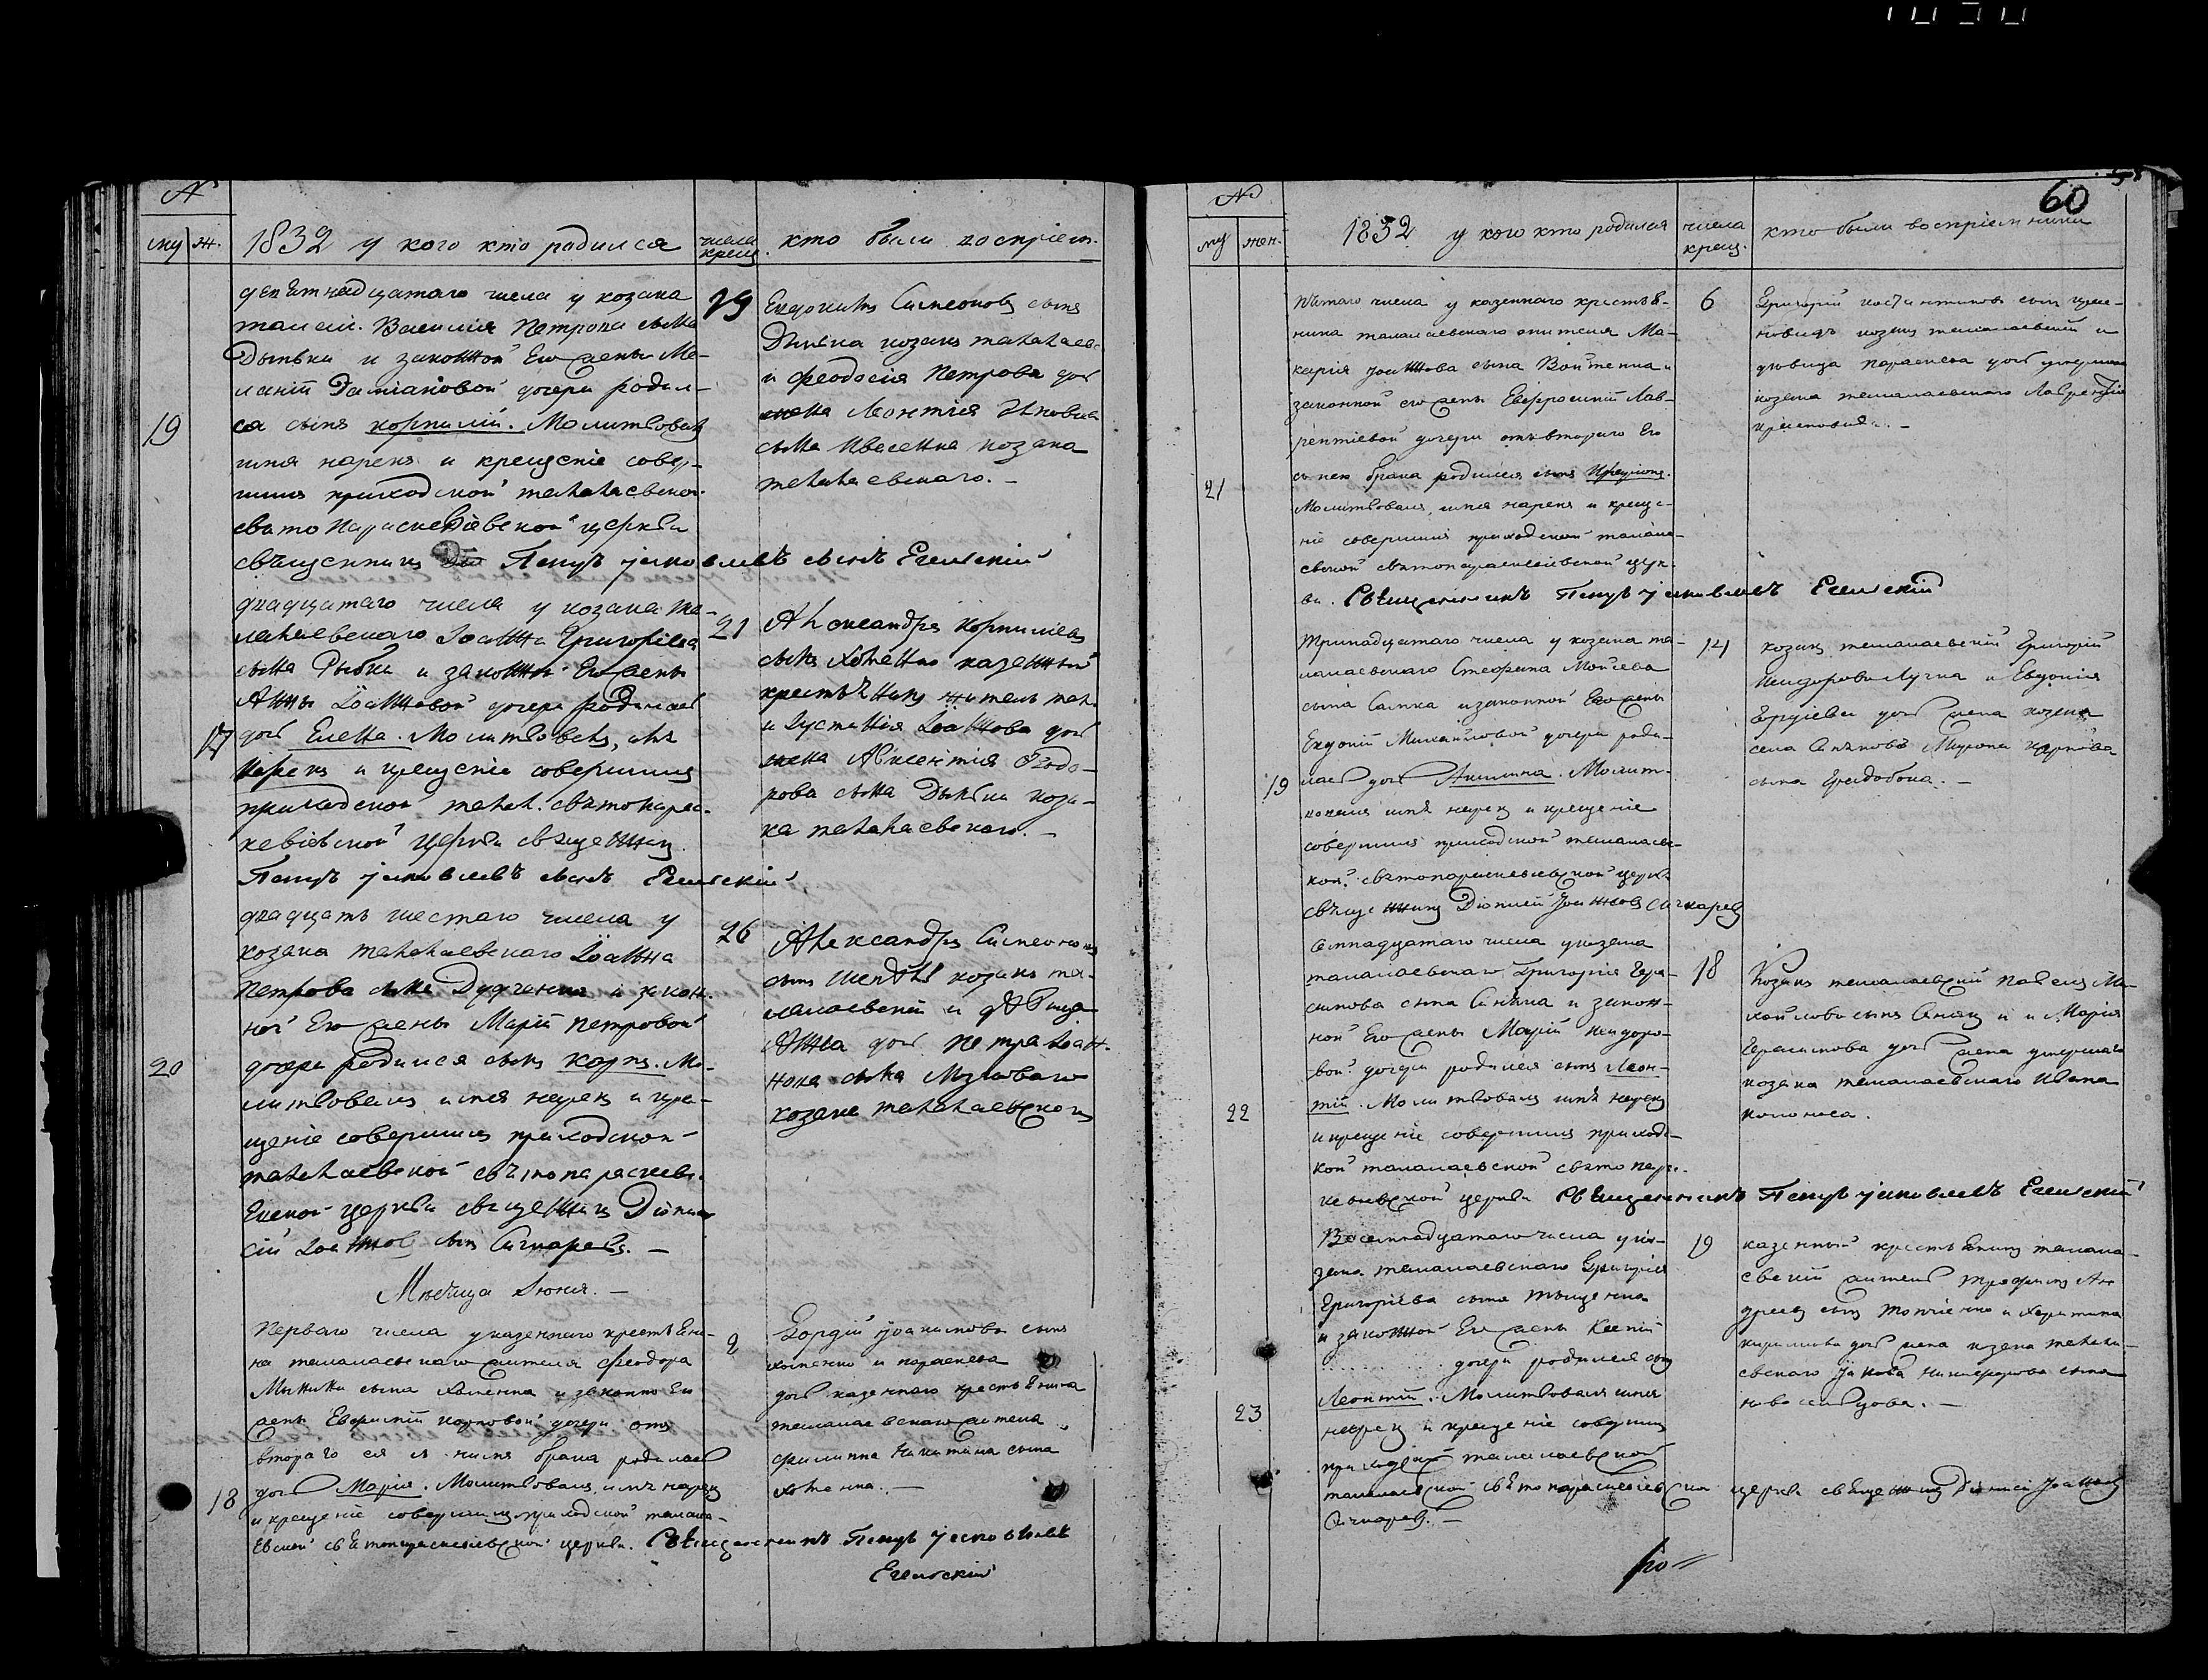 №
му ж. 1832 у кого кто родился числа крещ. кто были восприем.
девятнадцатаго числа у козака
талалаев. Василия Петрова сына
Дынька и законной Его жены Ме-
ланіи Даміановой дочери родил-
19 ся сынъ корнилій. Молитвовалъ
имя нарекъ и крещеніе совер-
шилъ приходской талалаевской
свято Параскевіевской церкви
священникъ Петръ Іаковлевъ сынъ Египскій
19 Евдокимъ Симеоновъ сынъ
Дынька козакъ талалаев.
и Феодосія Петрова доч
жена Леонтія
сына козака
талалаевскаго. –
двадцатаго числа у козака та-
лалаевскаго Іоанна Григорьева
сына Рыбки и законной Его жены
Анны Іоанновой дочери родилась
17 доч Елена. Молитвовалъ, имя
нарекъ и крещеніе совершилъ
приходской талал. свято парас-
кевіевской церкви священникъ
Петръ Іаковлевъ сынъ Египскій
21 Александръ Корнилиевъ
сынъ Хоменко казенный
крестьянинъ житель тал.
и Іустинія Іоаннова доч
жена Авксентія Федо-
рова сына Дынька коза-
ка талалаевскаго. –
двадцать шестаго числа у
козака талалаевскаго Іоанна
Петрова сына Дудченка и закон-
ной Его жены Маріи Петровой
20 дочери родился сынъ карпъ. Мо-
литвовалъ имя нарекъ и кре-
щеніе совершилъ приходской
талалаевской святопараскеві-
евской церкви священникъ Діони-
сій Іоанновъ сынъ Сичкаревъ. –
26 Александръ Симеоновъ
сынъ козакъ та-
лалаевскій и дѣвица
Анна доч Петра Іоан-
нова сына
козака талалаевскаго
Мѣсяца Іюня. –
Перваго числа у казеннаго крестьяни-
на талалаевскаго жителя Феодора
Никиты сына Хоменка и законно Его
жены Евфиміи карповой дочери отъ
втораго ея съ нимъ брака родилась
18 доч Марія. Молитвовалъ, имя нарекъ
и крещеніе совершилъ приходской талала-
евской святопараскевіевской церкви. Священникъ Петръ Іаковлевъ
Египскій
2 Гордій Іоакимовъ сынъ
хоменко и параскева
доч казеннаго крестьянина
талалаевскаго жителя
филиппа Никитина сына
Хоменка. –
60
№
му жен. 1832 у кого кто родился числа крещ. кто были восприемники
пятаго числа у казеннаго крестья-
нина талалаевскаго жителя Ма-
карія Іоаннова сына Войтенка и
законной его жены Евфросиніи Лав-
рентіевой дочери отъ втораго Его
21 съ нею брака родился сынъ
Молитвовалъ, имя нарекъ и креще-
ніе совершилъ приходской талала-
евской святопараскевіевской церк-
ви. Священникъ Петръ Іаковлевъ Египскій
6 Григорій константиновъ сынъ
козакъ талалаевскій и
дѣвица параскева доч умершаго
козака талалаевскаго Лаврентія
тринадцатаго числа у козака та-
лалаевскаго Стефана Моисеева
сына Сапка и законной Его жены
Евдокіи Михайловой дочери роди-
19 лась доч Акилина. Молит-
вовалъ имя нарекъ и крещеніе
совершилъ приходской талалаев-
кой святопараскевіевской церкви
священникъ Діонисій Іоанновъ Сичкаревъ
14 козакъ талалаевскій Григорій
и Евдокія
доч жена козака
села
сына –
семнадцатаго числа у козака
талалаевскаго Григорія Гера-
симова сына Синяка и закон-
ной Его жены Маріи Исидоро-
вой дочери родился сынъ Леон-
22 тій. Молитвовалъ имя нарекъ
и крещеніе совершилъ приходс-
кой талалаевской свято парас-
кевіевской церкви Священникъ Петръ Іаковлевъ Египскій
18 Козакъ талалаевскій павелъ Ми-
хайловъ сынъ Синяк и Марія
Герасимова доч жена умершаго
козака талалаевскаго Ивана
колоноса.
Восемнадцатаго числа у ко-
зака талалаевскаго Григорія
Григоріева сына Тищенка
и законной Его жены Ксеніи
дочери родился сынъ
23 Леонтій. Молитвовалъ имя
нарекъ и крещеніе совершилъ
приходской талалаевской
талалаевской святопараскевіевской церкви священникъ Діонисій Іоанновъ
Сичкаревъ. –
19 казенный крестьянинъ талала-
евскій житель трофимъ Ан-
дреевъ сынъ и харитина
кирилова доч жена козака талала-
евскаго Іакова Никифорова сына
новосельцова. –